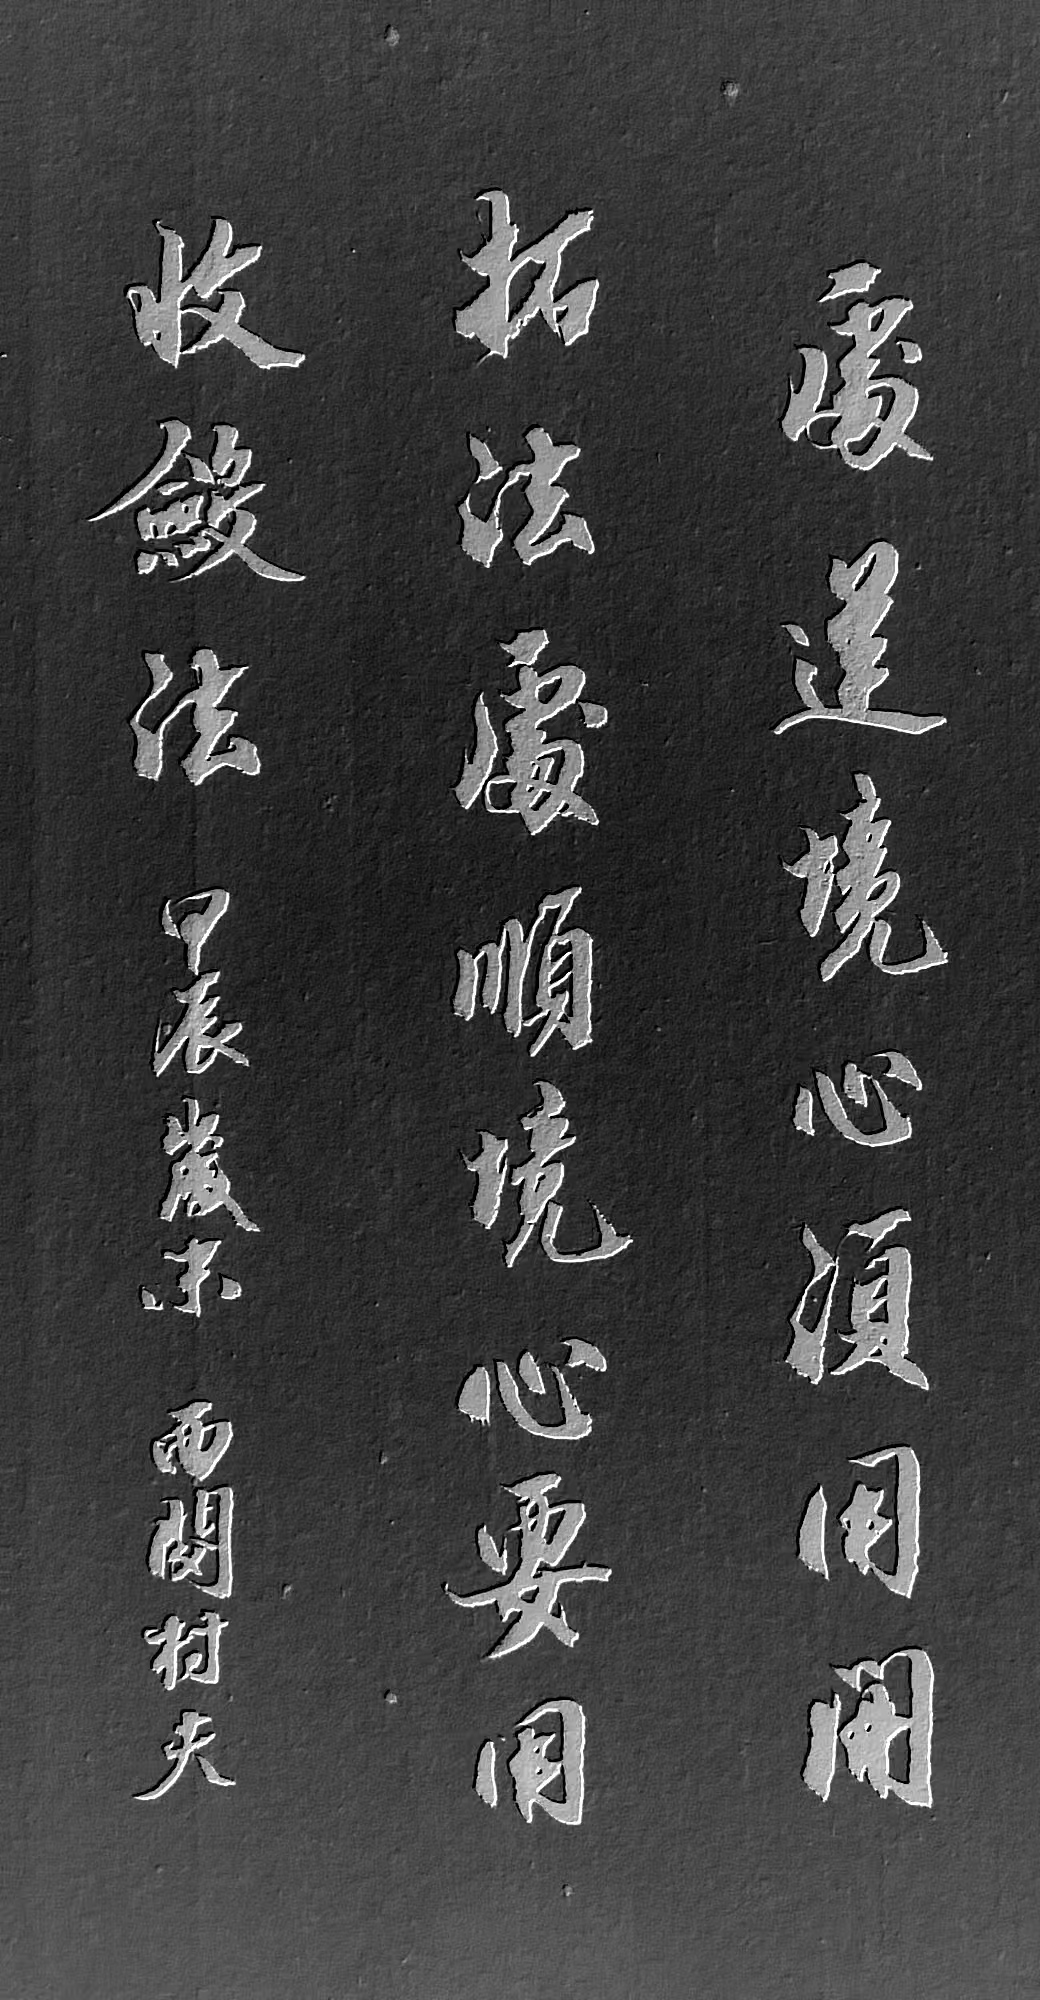 處逆境心須用開
拓法處順境心要用
收斂法 甲辰歲末 西關村夫